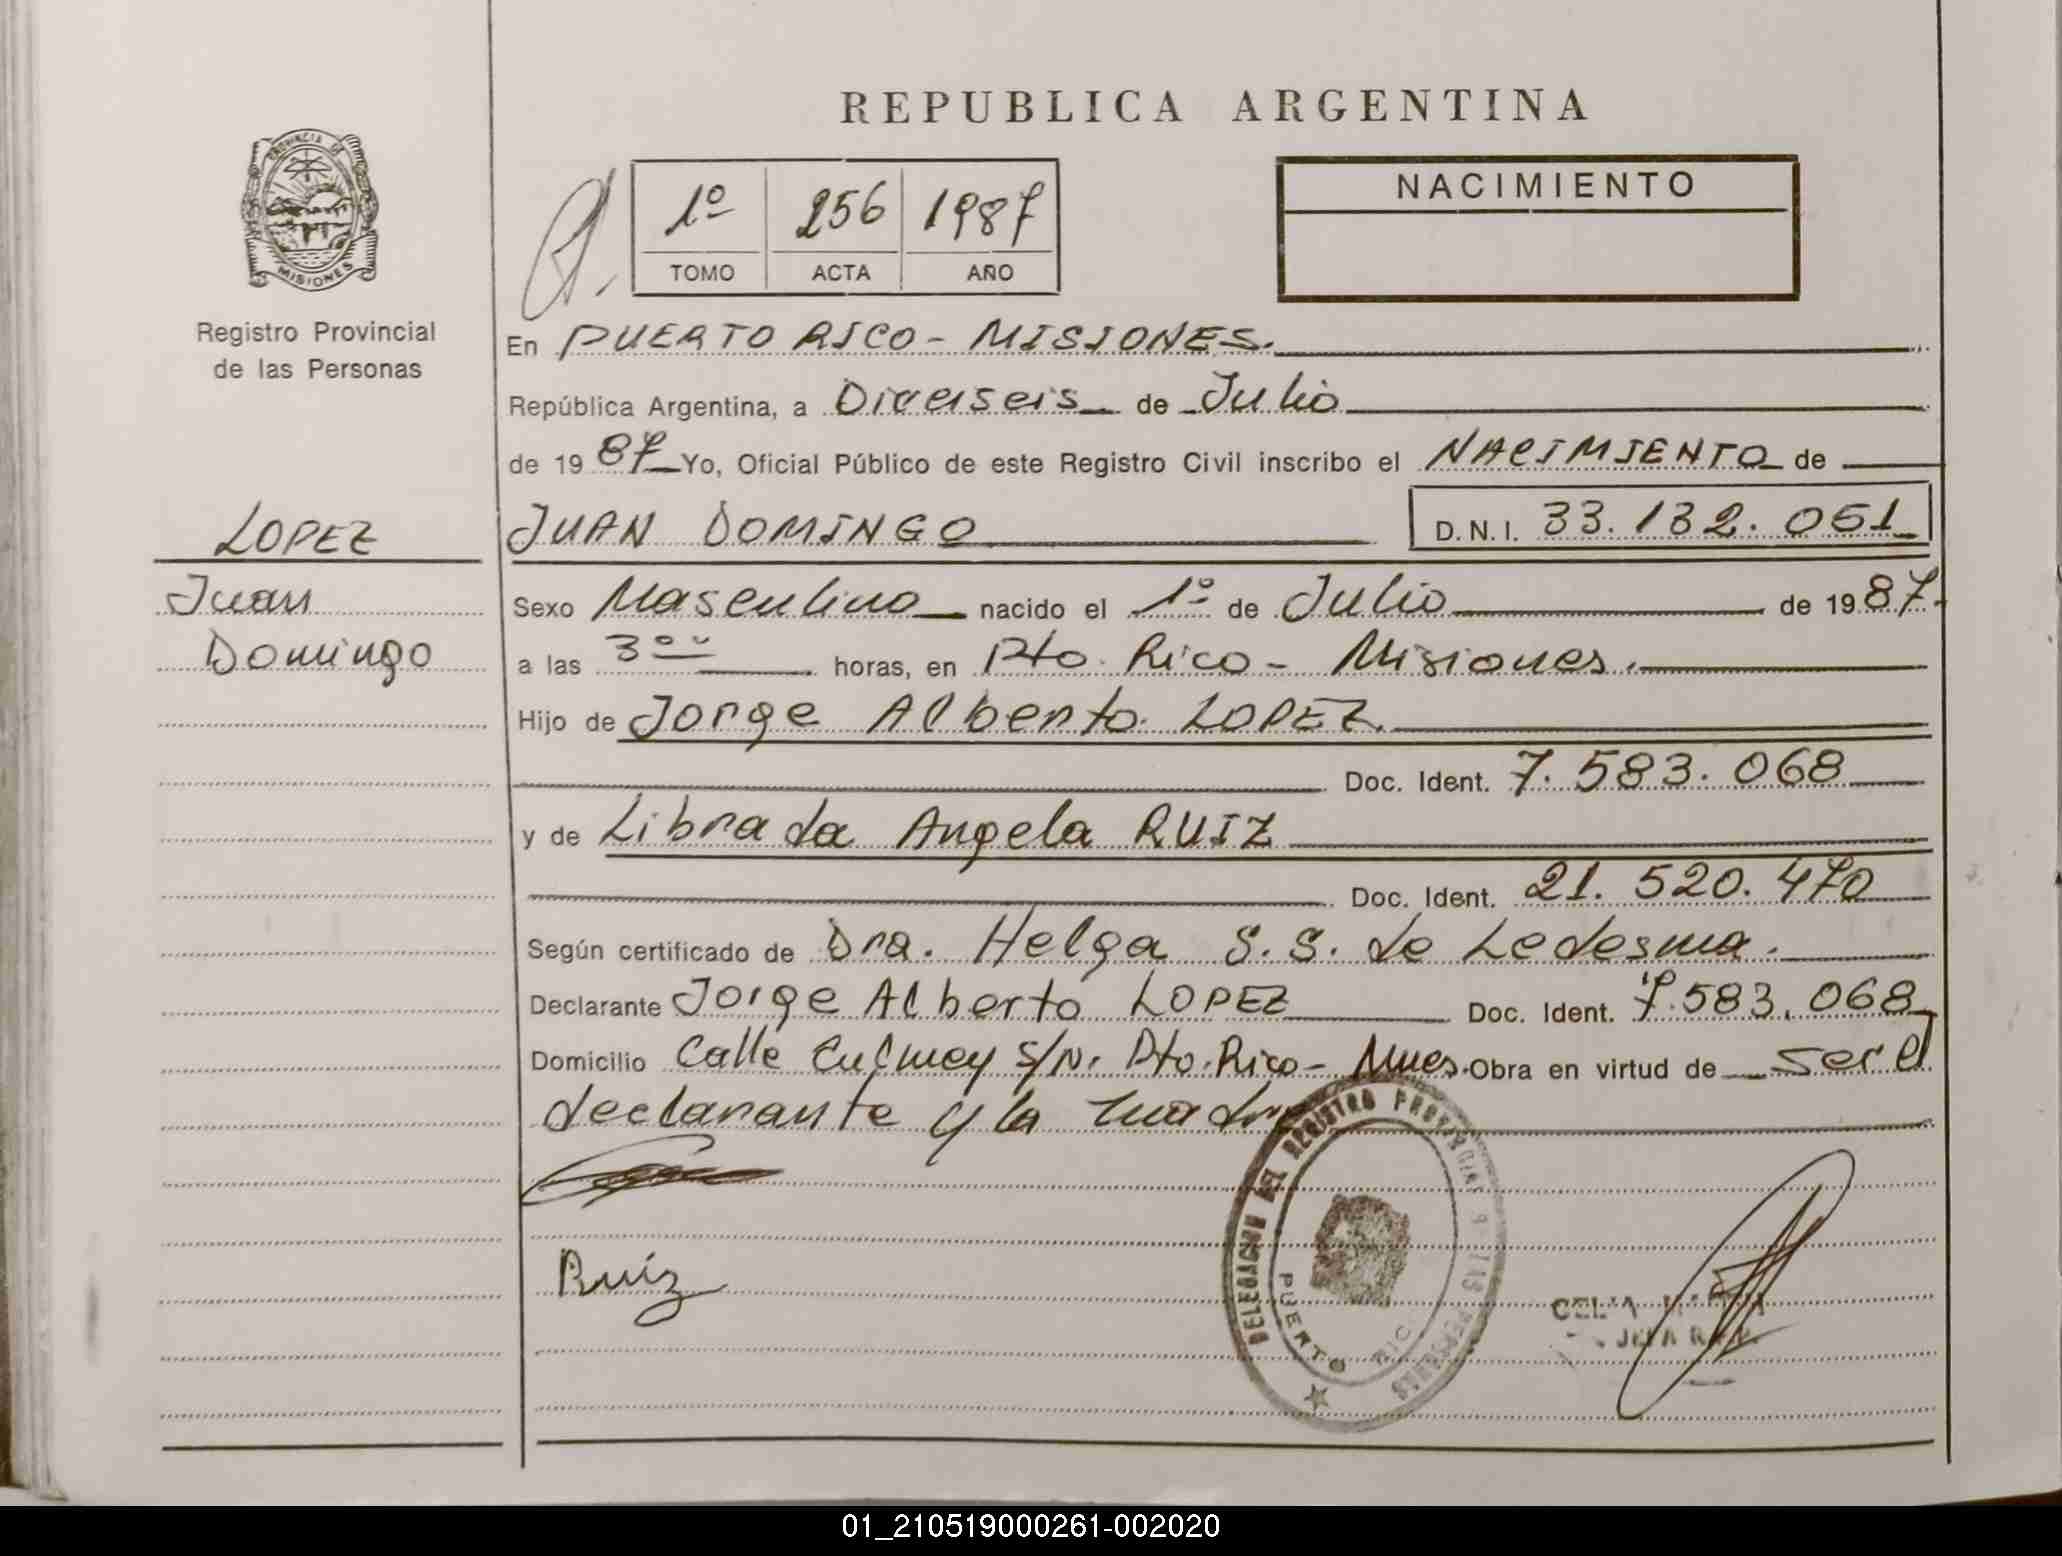 REPUBLICA ARGENTINA
PROVINCIA DE
MISIONES
1º 256 1987
TOMO ACTA AÑO
NACIMIENTO
Registro Provincial
de las Personas
En PUERTO RICO - MISIONES.
República Argentina, a Dieciseis de Julio
de 1987 Yo, Oficial Público de este Registro Civil inscribo el NACIMIENTO de
LOPEZ
Juan
Domingo
JUAN DOMINGO D.N.I. 33.132.051
Sexo Masculino nacido el 1º de Julio de 1987.
a las 3ºº horas, en Pto. Rico - Misiones.
Hijo de Jorge Alberto LOPEZ.
Doc. Ident. 7.583.068
y de Librada Angela RUIZ
Doc. Ident. 21.520.470
Según certificado de Dra. Helga S.S. de Ledesma.
Declarante Jorge Alberto LOPEZ Doc. Ident. 7.583.068
Domicilio Calle Culmey S/N. Pto. Rico - Mnes. Obra en virtud de ser el
declarante y la madre
Ruíz
DELEGACION DEL REGISTRO PROVINCIAL DE LAS PERSONAS
PUERTO RICO
01_210519000261-002020